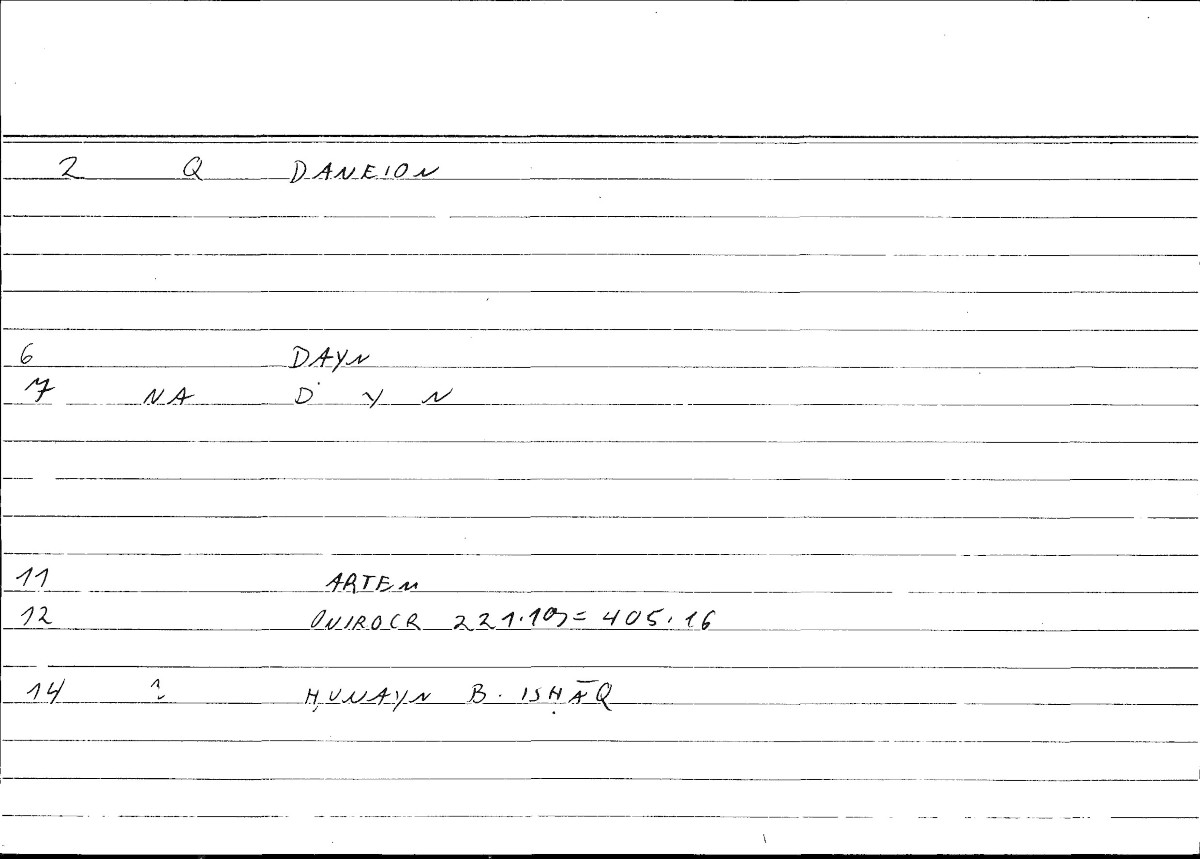 2 Q DANEION
6 DAYN
7 NA D Y N
11 ARTEM
12 ONIROCR 221.19 = 405.16
14 ḤUNAYN B. ISḤĀQ